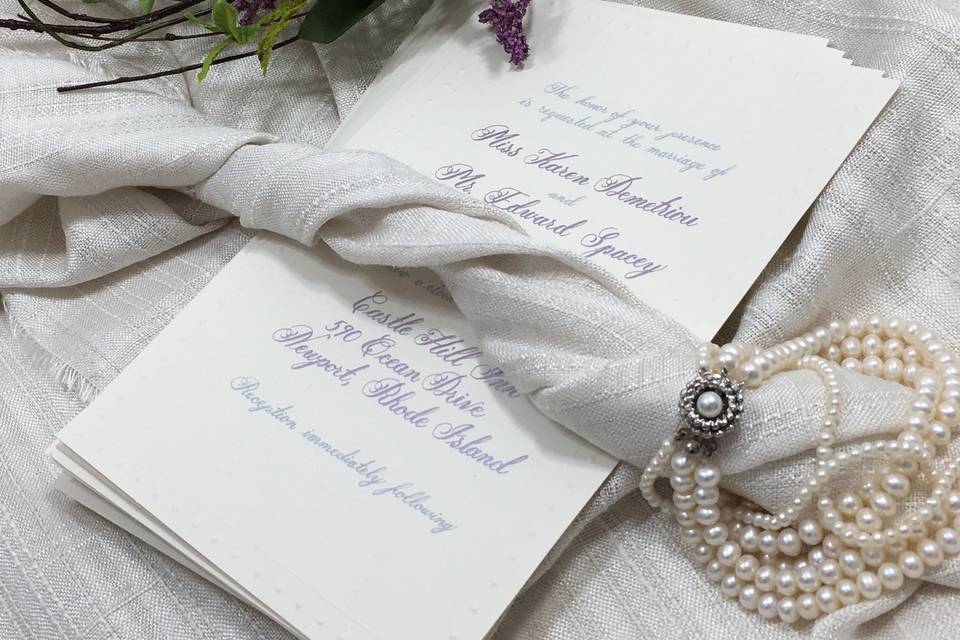 The honor of your presence
is requested at the marriage of
Miss Karen Demetriou
and
Mr. Edward Spacey
o'clock
Castle Hill Inn
590 Ocean Drive
Newport, Rhode Island
Reception immediately following